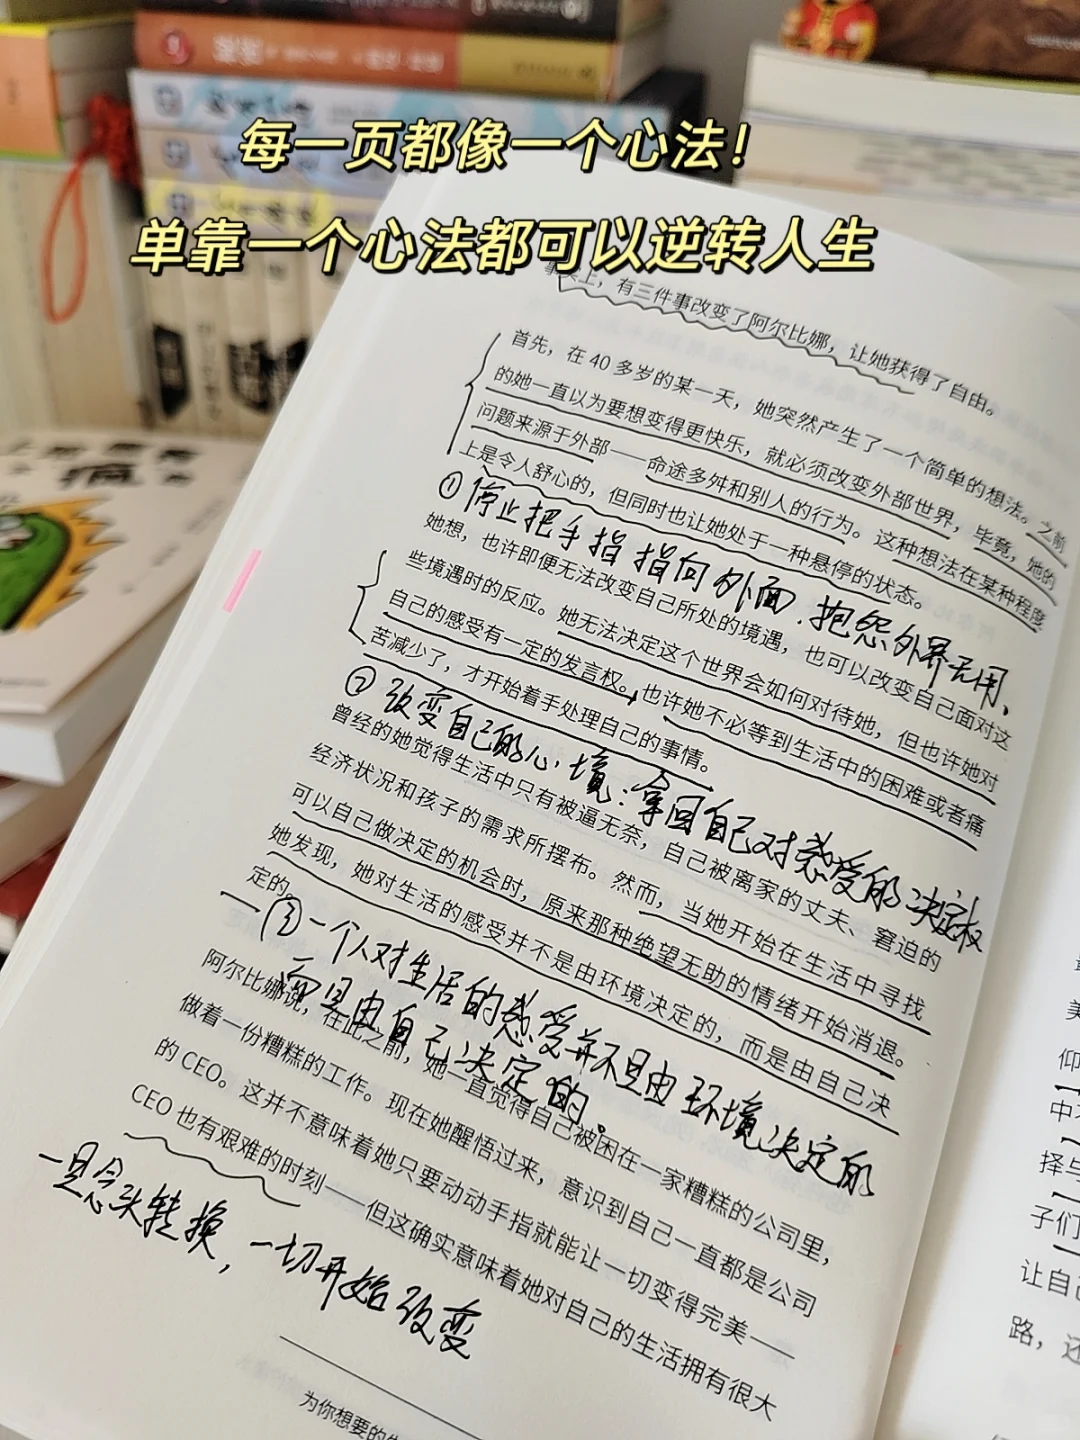 每一页都像一个心法！
单靠一个心法都可以逆转人生
事实上，有三件事改变了阿尔比娜，让她获得了自由。
首先，在 40 多岁的某一天，她突然产生了一个简单的想法。之前
的她一直以为要想变得更快乐，就必须改变外部世界，毕竟，她的
问题来源于外部——命途多舛和别人的行为。这种想法在某种程度
上是令人舒心的，但同时也让她处于一种悬停的状态。
①停止把手指指向外面，抱怨外界无用，
她想，也许即便无法改变自己所处的境遇，也可以改变自己面对这
些境遇时的反应。她无法决定这个世界会如何对待她，但也许她对
自己的感受有一定的发言权。也许她不必等到生活中的困难或者痛
苦减少了，才开始着手处理自己的事情。
②改变自己的心境：拿回自己对感受的决定权
曾经的她觉得生活中只有被逼无奈，自己被离家的丈夫、窘迫的
经济状况和孩子的需求所摆布。然而，当她开始在生活中寻找
可以自己做决定的机会时，原来那种绝望无助的情绪开始消退。
她发现，她对生活的感受并不是由环境决定的，而是由自己决
定的。
③一个人对生活的感受并不是由环境决定的
而是由自己决定的。
阿尔比娜说，在此之前，她一直觉得自己被困在一家糟糕的公司里，
做着一份糟糕的工作。现在她醒悟过来，意识到自己一直都是公司
的 CEO。这并不意味着她只要动动手指就能让一切变得完美——
CEO 也有艰难的时刻——但这确实意味着她对自己的生活拥有很大
一旦念头转换，一切开始改变
为你想要的
美
仰
中
择与
子们
让自己
路，还